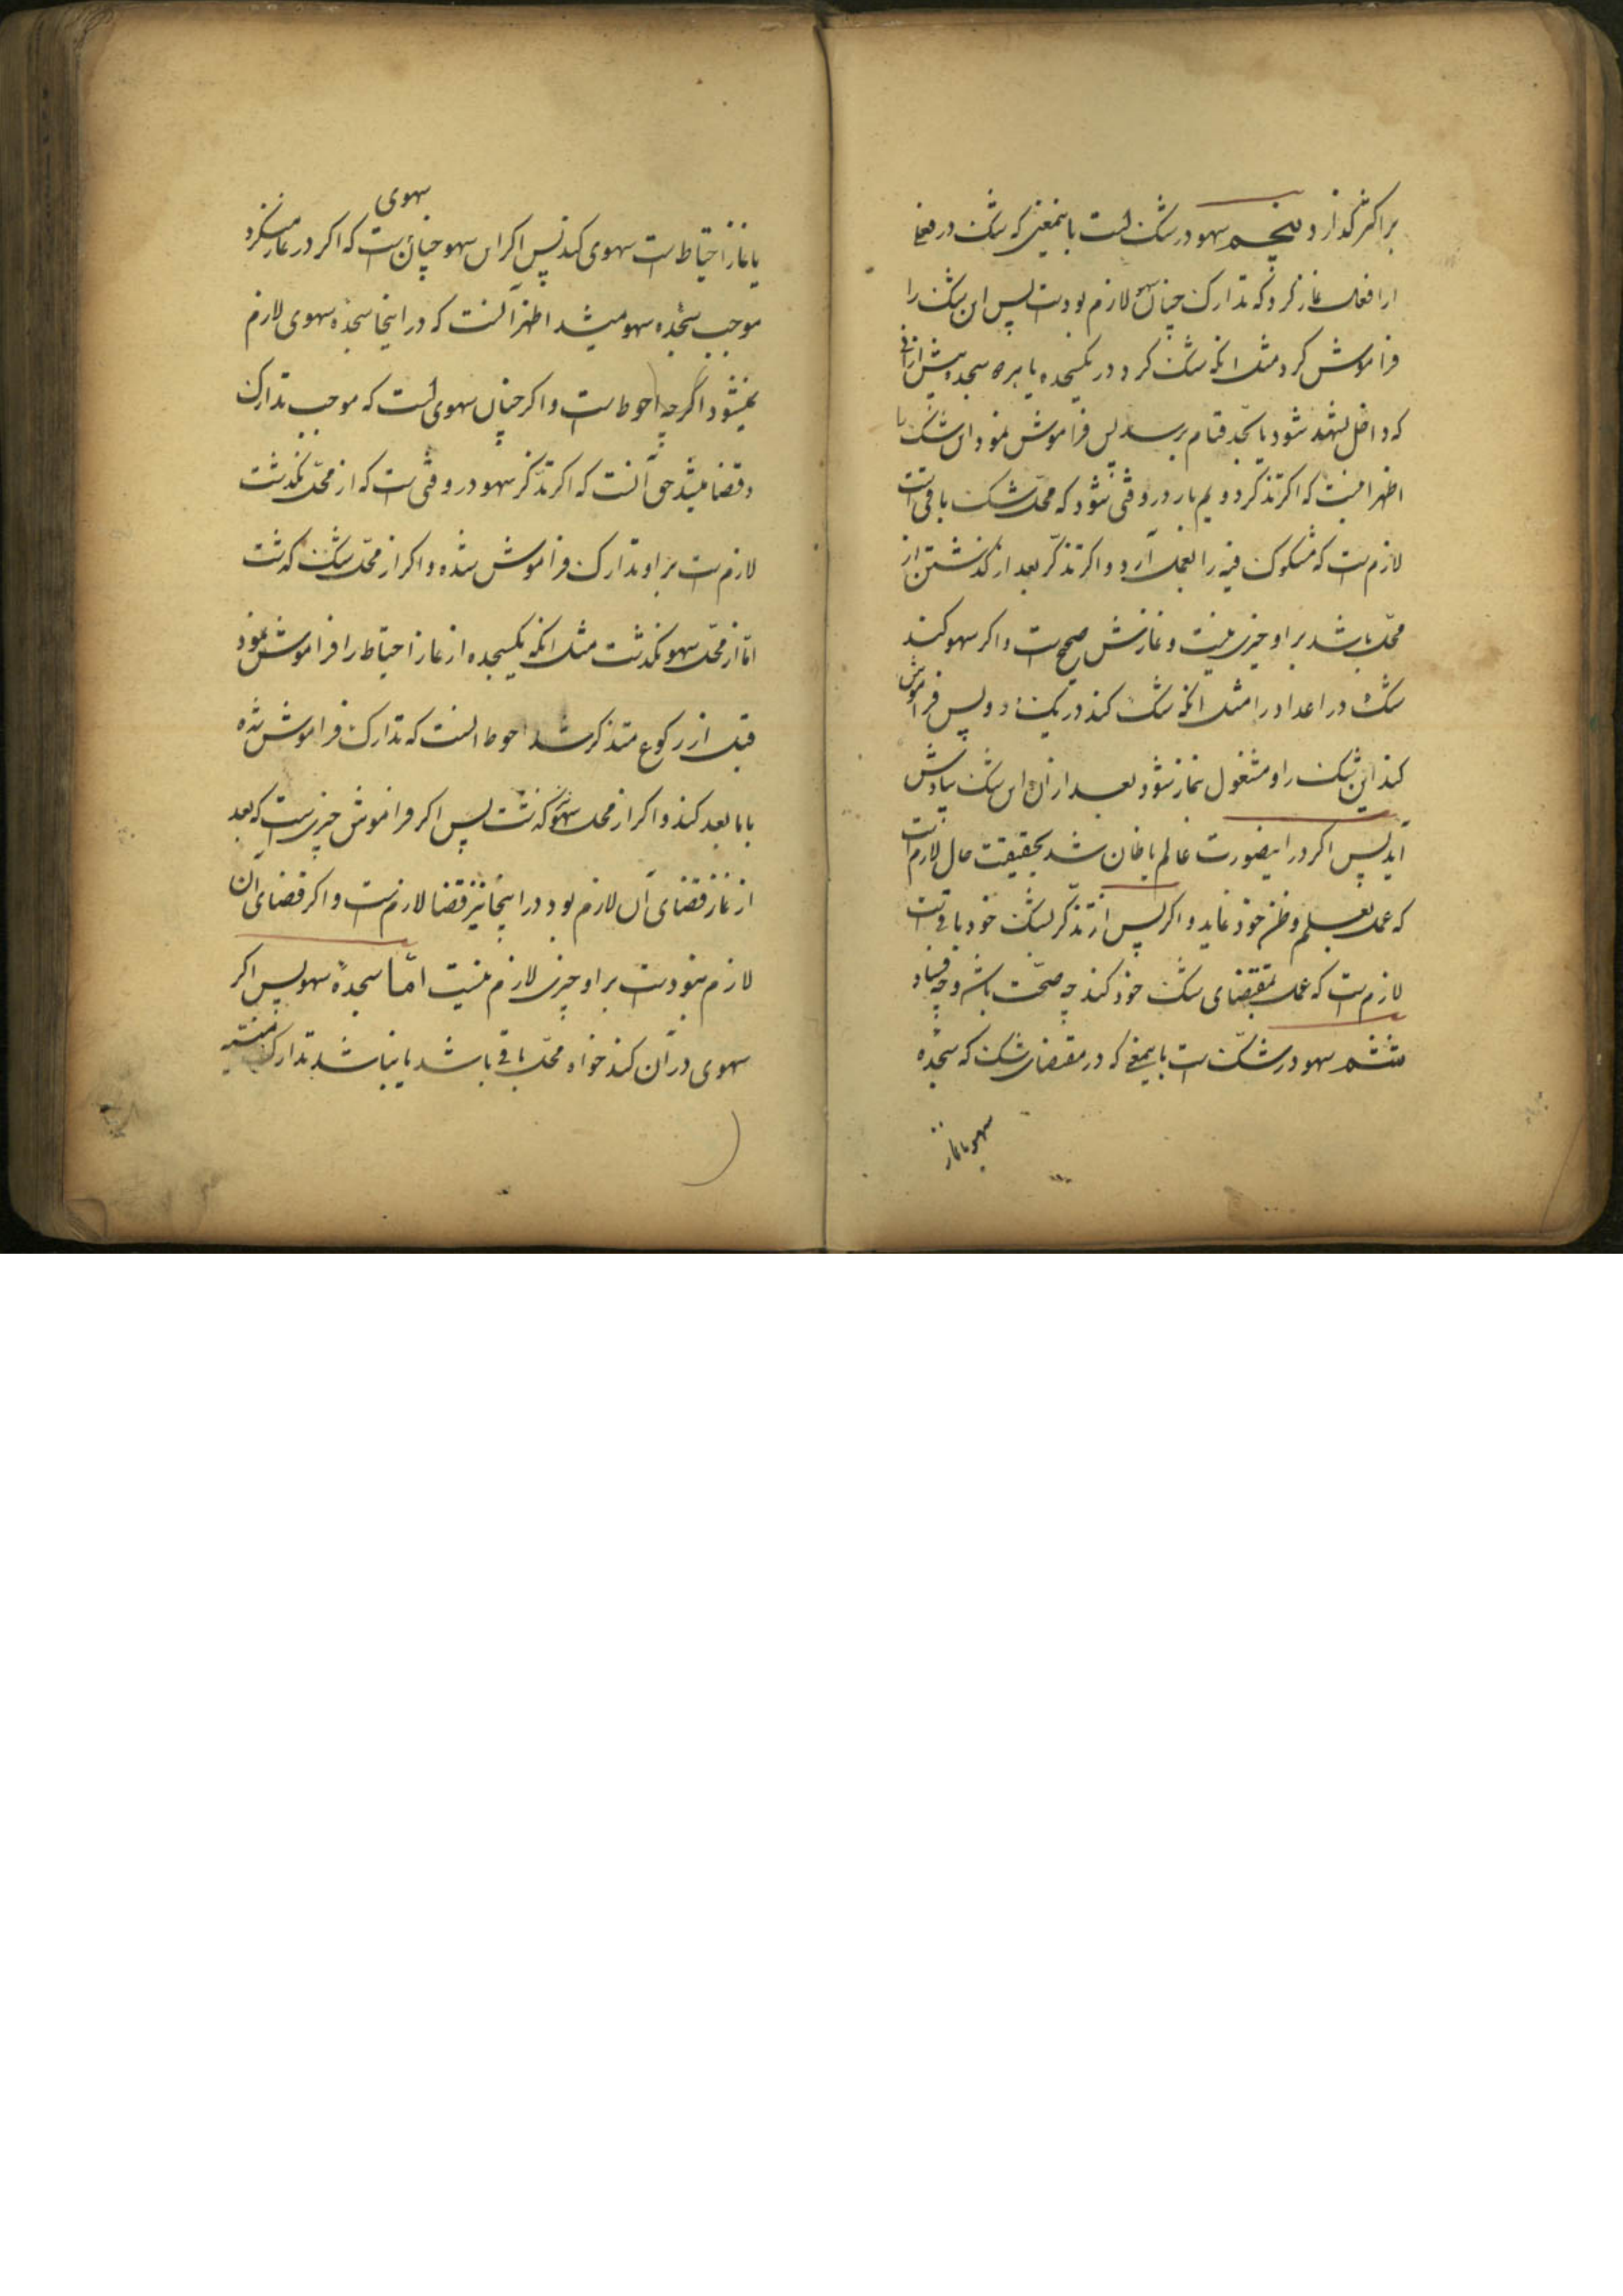 بر اکثر گذارد پنجم سهو در شک است باینمعنی که شک در فعلی
از افعال نماز کرد که تدارک چنان سهو لازم بودست پس این شک را
فراموش کرد مثل انکه شک کرد در یکسجده یا هر دو سجده پیش ازانی
که داخل تشهد شود یا بحد قیام برسد پس فراموش نمود این شک را
اظهر اینست که اکر تذکر دویم بار در وقتی شود که محل شک باقی است
لازمست که مشکوک فیه را بعمل آرد و اکر تذکر بعد از گذشتن از
محل باشد بر او چیزی نیست و نمازش صحیح است و اکر سهو کند
شک در اعداد را مثل انکه شک کند در یک و دو پس فراموش
کند این شک را و مشغول نماز شود بعد از ان این شک بیادش
آید پس اکر در اینصورت عالم یا ظان شد بحقیقت حال لازم است
که عمل بعلم و ظن خود نماید و اکر پس از تذکر بشک خود باقیست
لازمست که عمل بمقتضای شک خود کند چه صحت باشد و چه فساد
ششم سهو در شک است باینمعنی که در مقتضای شک که سجده
سهو یا نماز
یا نماز احتیاط است سهوی کند پس اکر این سهو چنان سهوی است که اکر در نماز میکرد
موجب سجده سهو میشد اظهر آنست که در اینجا سجده سهوی لازم
نمیشود اکرچه احوط است و اکر چنان سهوی است که موجب تدارک
و قضا میشد حق آنست که اکر تذکر سهو در وقتی است که از محل نکذشت
لازمست بر او تدارک فراموش شده و اکر از محل شک کذشت
اما از محل سهو نکذشت مثل انکه یکسجده از نماز احتیاط را فراموش نمود
قبل از رکوع متذکر شد احوط انست که تدارک فراموش شده
با ما بعد کند و اکر از محل سهو کذشت پس اکر فراموش چیزی است که بعد
از نماز قضای آن لازم بود در اینجا نیز قضا لازمست و اکر قضای ان
لازم نبودست بر او چیزی لازم نیست امّا سجدهٔ سهو پس اکر
سهوی در آن کند خواه محل باقی باشد یا نباشد تدارک منسیه